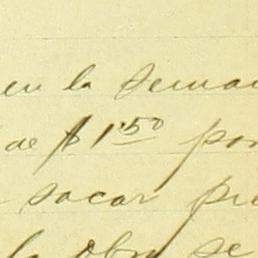 en la seman
de $1.50 por
sacar pi
la obra se